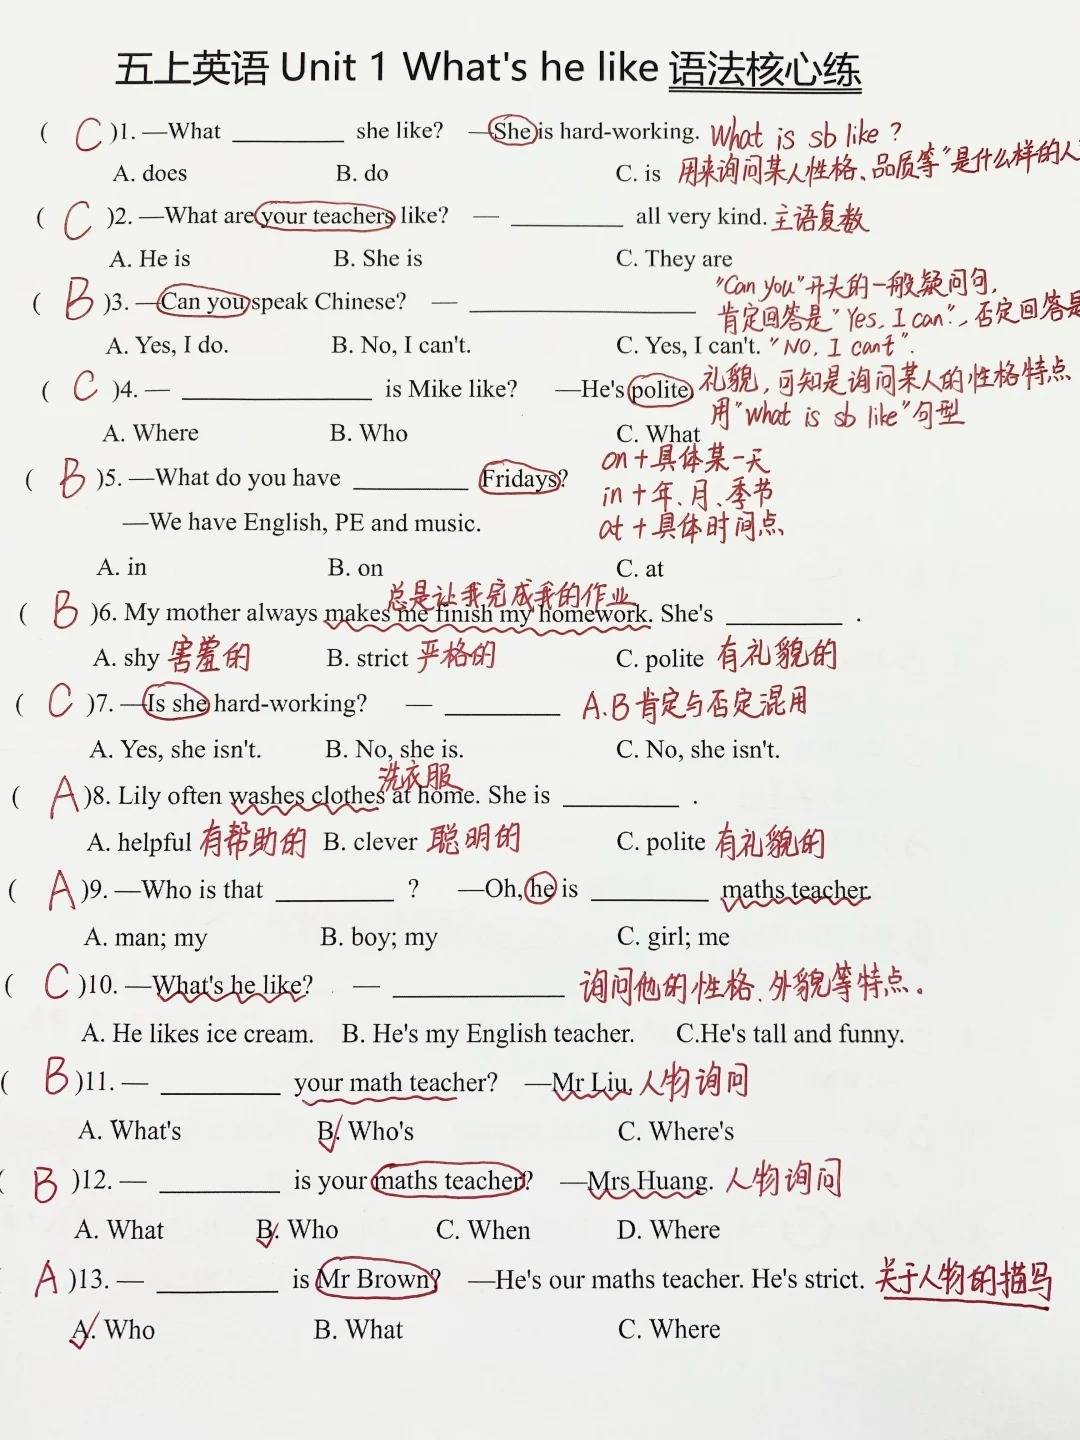 五上英语 Unit 1 What's he like 语法核心练
( C )1. —What ________ she like? —She is hard-working. What is sb like ?
A. does B. do C. is 用来询问某人性格、品质等"是什么样的人"
( C )2. —What are your teachers like? — ________ all very kind. 主语复数
A. He is B. She is C. They are
"Can you"开头的一般疑问句,
( B )3. —Can you speak Chinese? — ________ 肯定回答是"Yes, I can", 否定回答是
A. Yes, I do. B. No, I can't. C. Yes, I can't. "NO, I can't".
( C )4. — ________ is Mike like? —He's polite. 礼貌, 可知是询问某人的性格特点
用"what is sb like"句型
A. Where B. Who C. What
on + 具体某一天
( B )5. —What do you have ________ Fridays?
in + 年、月、季节
—We have English, PE and music. at + 具体时间点
A. in B. on C. at
总是让我完成我的作业
( B )6. My mother always makes me finish my homework. She's ________ .
A. shy 害羞的 B. strict 严格的 C. polite 有礼貌的
( C )7. —Is she hard-working? — ________ A.B 肯定与否定混用
A. Yes, she isn't. B. No, she is. C. No, she isn't.
洗衣服
( A )8. Lily often washes clothes at home. She is ________ .
A. helpful 有帮助的 B. clever 聪明的 C. polite 有礼貌的
( A )9. —Who is that ________ ? —Oh, he is ________ maths teacher.
A. man; my B. boy; my C. girl; me
( C )10. —What's he like? — ________ 询问他的性格、外貌等特点。
A. He likes ice cream. B. He's my English teacher. C.He's tall and funny.
( B )11. — ________ your math teacher? —Mr Liu. 人物询问
A. What's B. Who's C. Where's
( B )12. — ________ is your maths teacher? —Mrs Huang. 人物询问
A. What B. Who C. When D. Where
A )13. — ________ is Mr Brown? —He's our maths teacher. He's strict. 关于人物的描写
A. Who B. What C. Where